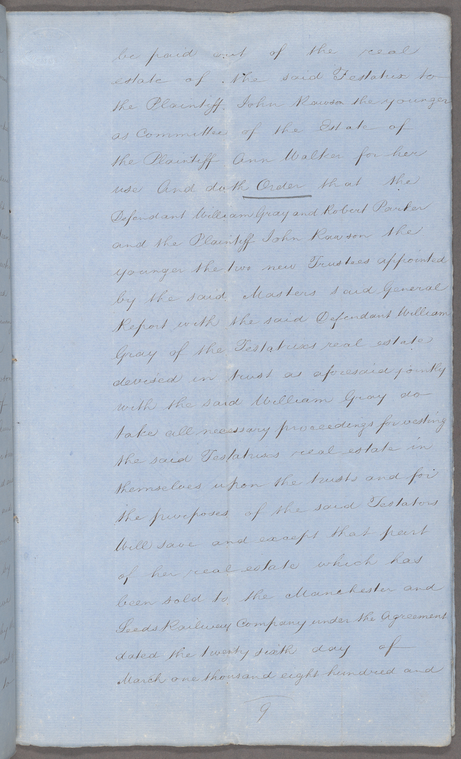 be paid out of the real
estate of the said Testatrix to
the Plaintiff John Rawson the younger
as Committee of the Estate of
the Plaintiff Ann Walker for her
use And doth Order that the
Defendant William Gray and Robert Parker
and the Plaintiff John Rawson the
younger the two new Trustees appointed
by the said Masters said General
Report with the said Defendant William
Gray of the Testatrixs real estate
devised in trust as aforesaid jointly
with the said William Gray do
take all necessary proceedings for vesting
the said Testatrixs real estate in
themselves upon the trusts and for
the purposes of the said Testators
Will save and except that part
of her real estate which has
been sold to the Manchester and
Leeds Railway Company under the Agreement
dated the twenty sixth day of
March one thousand eight hundred and
9